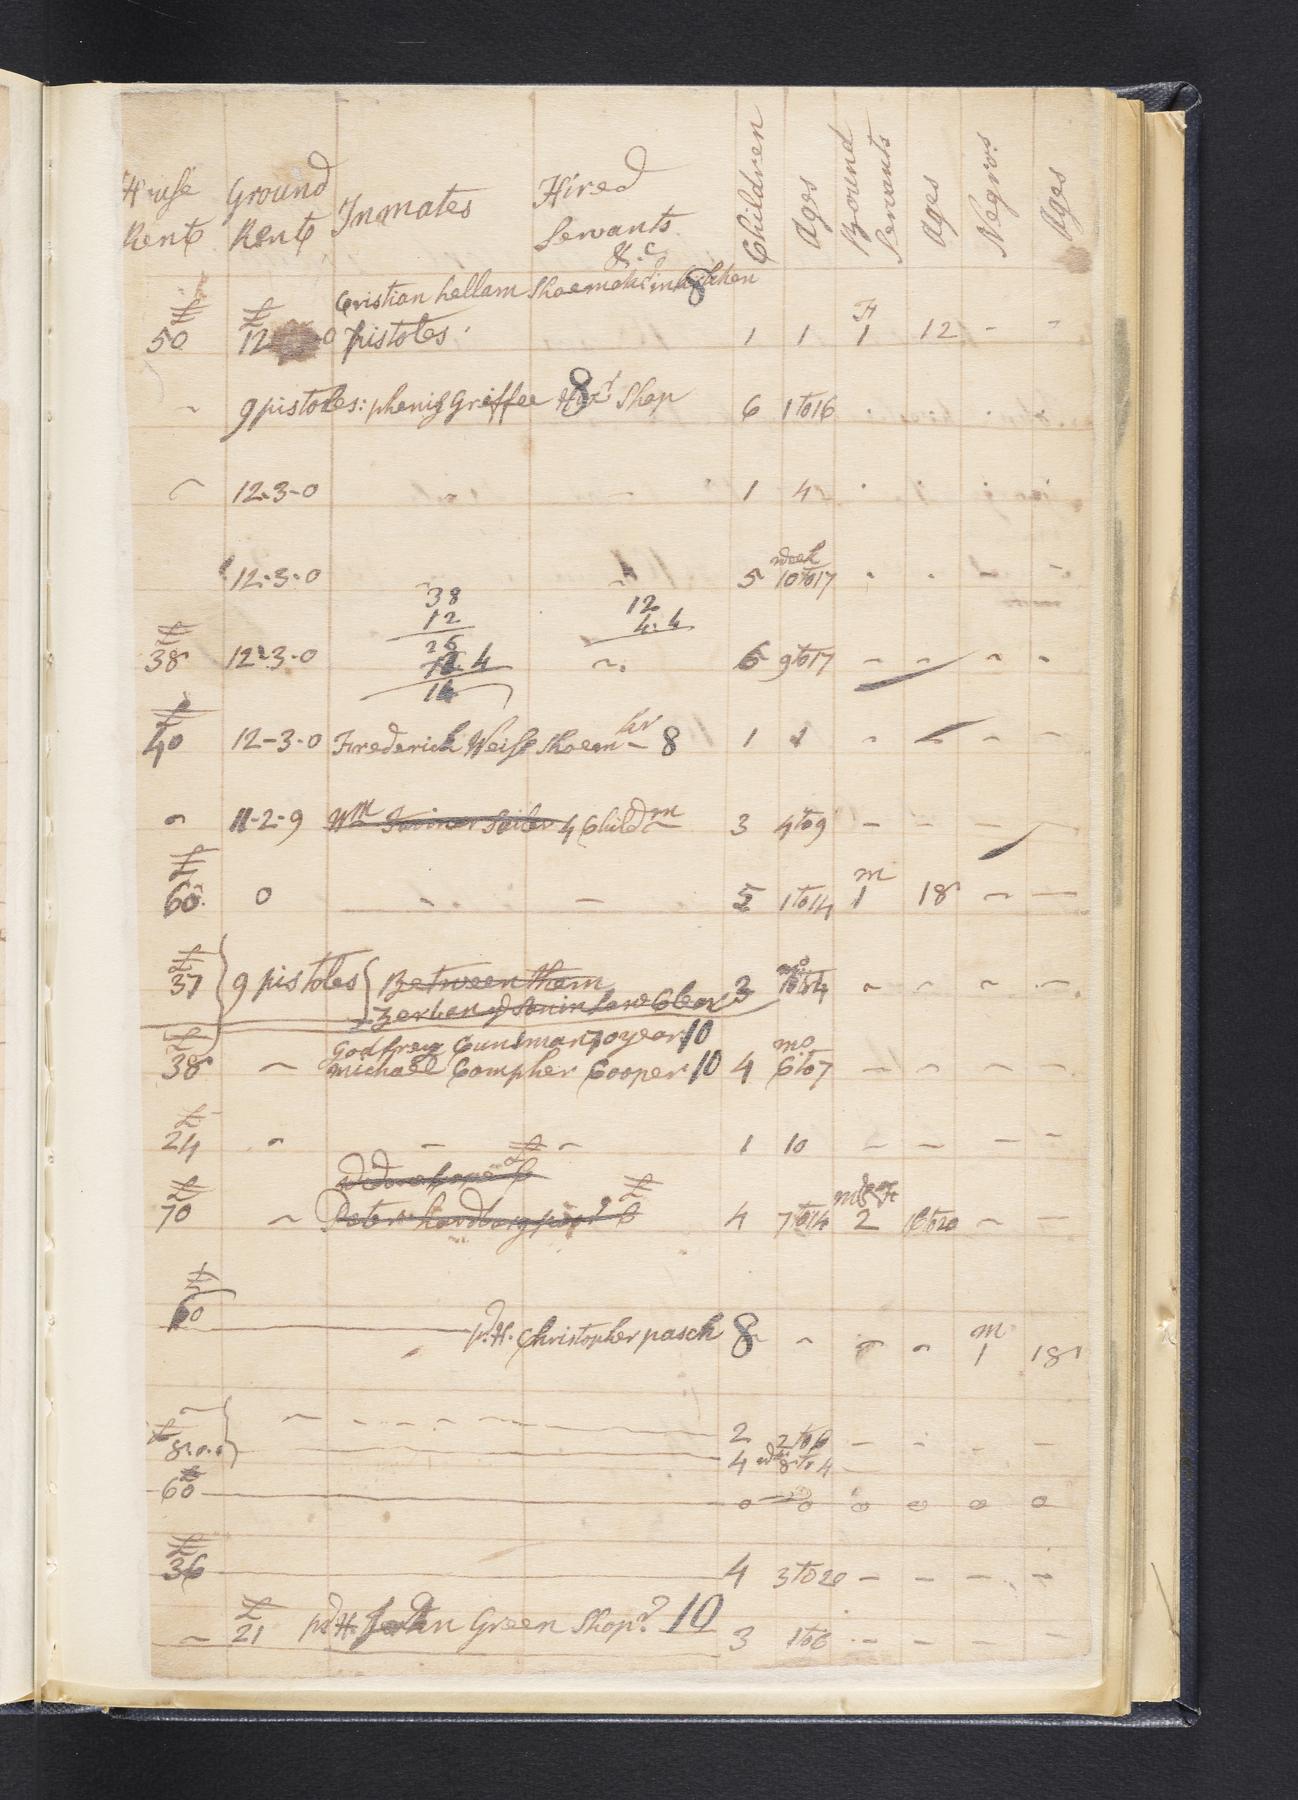 House Rent Ground Rent Inmates Hired Servants &.c Children Ages Bound Servants Ages Negros Ages
Cristian hellam Shoemakr in kitchen 8
£ 50 £ 12 0 pistoles 1 1 F 1 12 - -
~ 9 pistoles: phenis Griffee 8 Shop 6 1 to 16
~ 12-3-0 - - 1 4
12-3-0 ~ 5 week 10 to 17 - - - -
38 12
12 4.4
26
£ 38 12-3-0 4 ~ 6 9 to 17 - - - -
14
£ 40 12-3-0 Frederick Weiss Shoemkr 8 1 1 - - - -
~ 11-2-9 Wm Sailer 4 Childm 3 4 to 9 - - -
£ 60 0 - - 5 1 to 14 m 1 18 - -
£ 37 9 pistoles Between them 3 mo - - - -
Zerben
Godfrey Cunsman 70 year 10
£ 38 ~ michael Compher Cooper 10 4 mo 6 to 7 - - - -
£ 24 - - £ - 1 10 - - - -
£ 70 ~ Peter £ 4 7 to 14 2 18 to 20 - -
£ 60
Christopher pasch 8 - - - m 1 18
~ - - - - 2 2 to 6 - - - -
£ 8.0.0 4 8 to 4
£ 60 0 0 0 0 0 0
£ 36 4 3 to 20 - - - -
~ £ 21 John Green Shop 10 3 1 to 6 - - - -